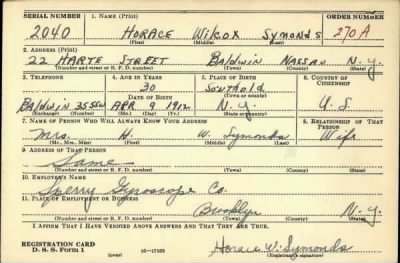 SERIAL NUMBER 1. NAME (Print) ORDER NUMBER
2040 HORACE WILCOX SYMONDS 270A
(First) (Middle) (Last)
2. ADDRESS (Print)
22 HARTE STREET BALDWIN NASSAU N.Y.
(Number and street or R. F. D. number) (Town) (County) (State)
3. TELEPHONE 4. AGE IN YEARS 5. PLACE OF BIRTH 6. COUNTRY OF CITIZENSHIP
30 Southold
DATE OF BIRTH (Town or county)
Baldwin 3555W APR 9 1912 N.Y. U.S.
(Exchange) (Number) (Mo.) (Day) (Yr.) (State or country)
7. NAME OF PERSON WHO WILL ALWAYS KNOW YOUR ADDRESS 8. RELATIONSHIP OF THAT PERSON
Mrs. H. W. Symonds Wife
(Mr., Mrs., Miss) (First) (Middle) (Last)
9. ADDRESS OF THAT PERSON
Same
(Number and street or R. F. D. number) (Town) (County) (State)
10. EMPLOYER'S NAME
Sperry Gyroscope Co.
11. PLACE OF EMPLOYMENT OR BUSINESS
Brooklyn N.Y.
(Number and street or R. F. D. number) (Town) (County) (State)
I AFFIRM THAT I HAVE VERIFIED ABOVE ANSWERS AND THAT THEY ARE TRUE.
REGISTRATION CARD
D. S. S. Form 1 (over) 16-17105 Horace W. Symonds
(Registrant's signature)